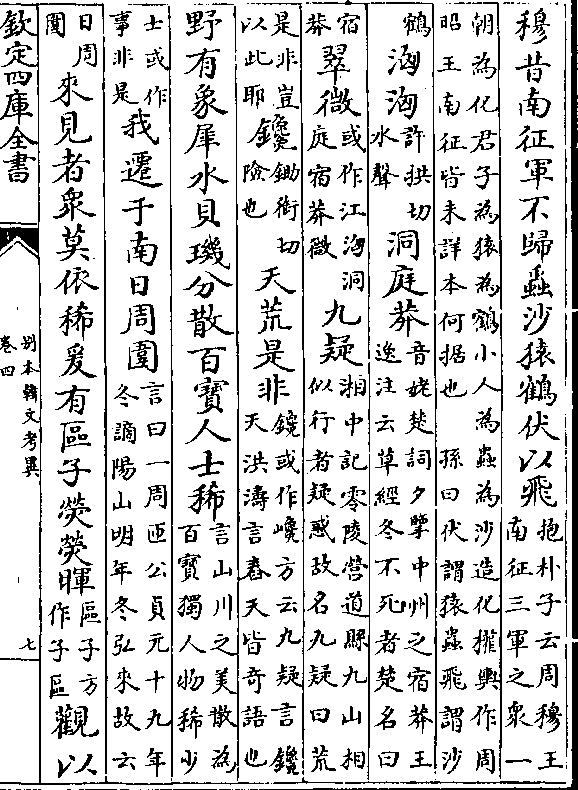 穆昔南征軍不歸蟲沙猿鶴伏以飛抱朴子云周穆王南征三軍之衆一
朝為化君子為猿為鶴小人為蟲為沙造化權輿作周昭王南征皆未詳本何据也 孫曰伏謂猿蟲飛謂沙
鶴洶洶許拱切水聲洞庭莽音姥楚詞夕擥中州之宿莽王逸注云草經冬不死者楚名曰
宿莽翠微或作江洶洞庭宿莽微九疑湘中記零陵營道縣九山相似行者疑惑故名九疑曰荒
是非豈以此耶鑱鋤銜切險也天荒是非鑱或作巉方云九疑言鑱天洪濤言舂天皆奇語也
野有象犀水貝璣分散百寶人士稀言山川之美散為百寶獨人物稀少
士或作事非是我遷于南日周圍言日一周匝公貞元十九年冬謫陽山明年冬弘來故云
日周圍來見者衆莫依稀爰有區子熒熒暉區子方作子區觀以
欽定四庫全書
别本韓文考異
卷四
七